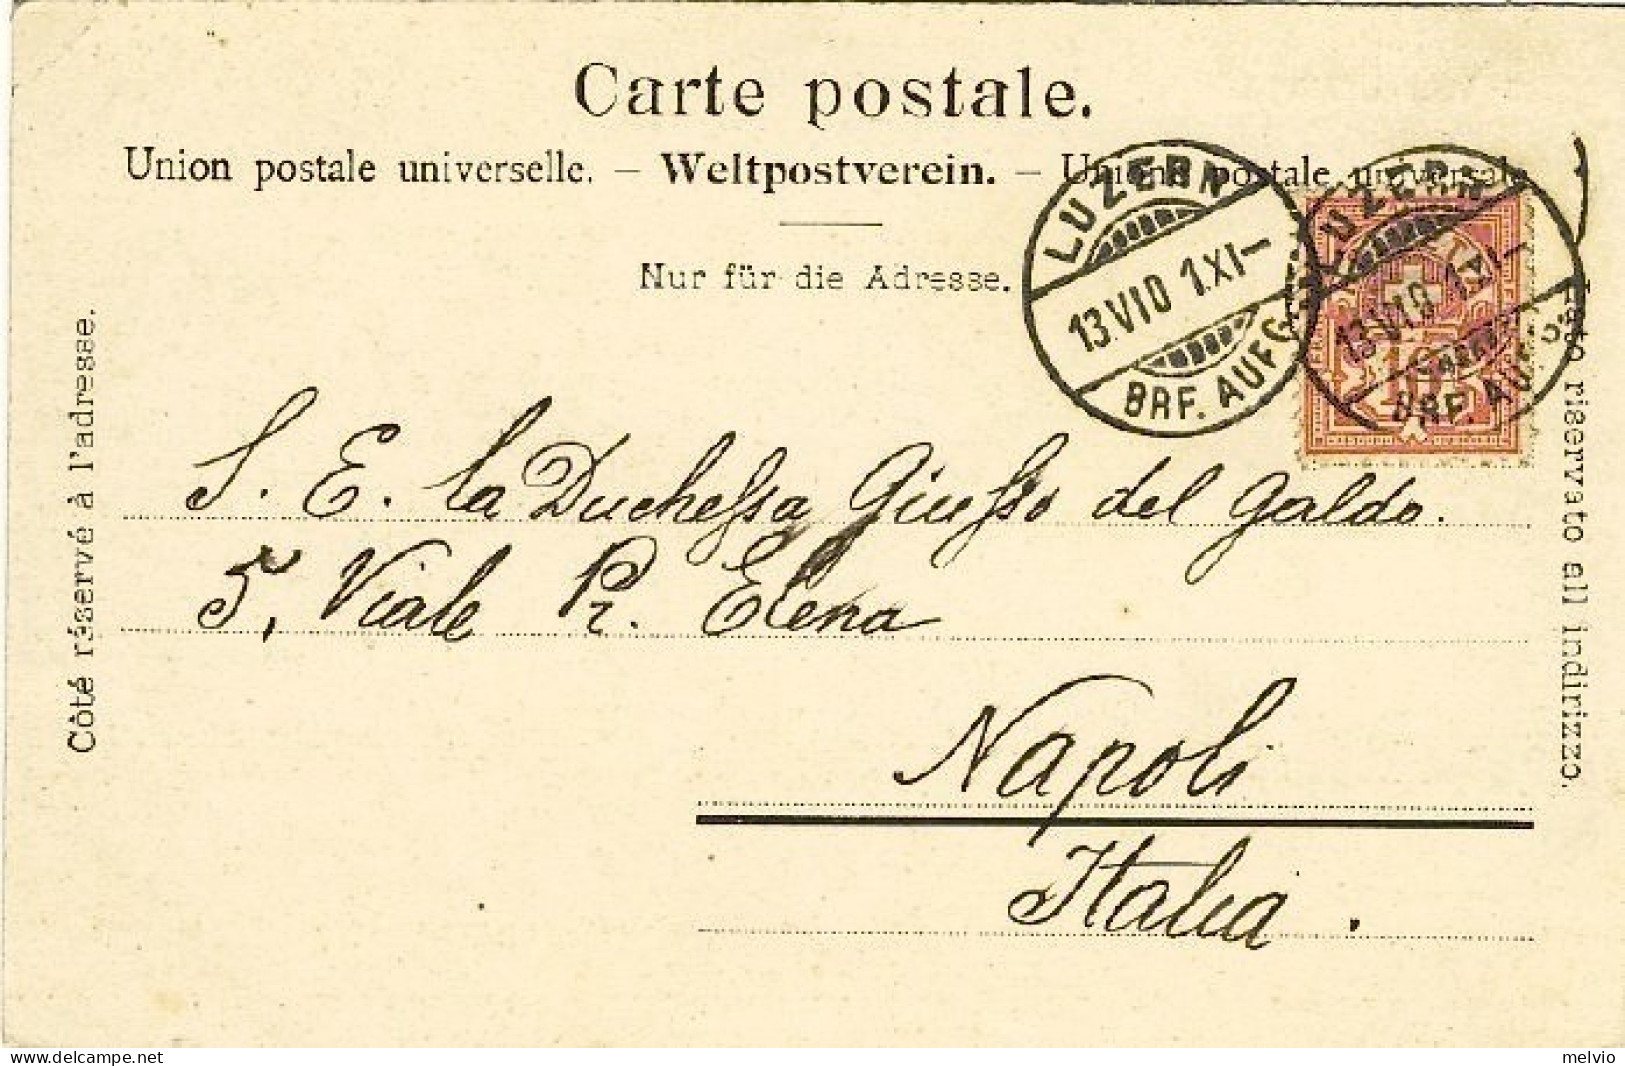 Carte postale.
Union postale universelle. – Weltpostverein. – Unione postale universale
Nur für die Adresse.
Côté réservé à l'adresse.
Lato riservato all indirizzo.
LUZERN
13.VI.0 1.XI–
BRF. AUFG.
LUZERN
13.VI.0 1.XI–
BRF. AUFG.
10
S. E. la Duchessa Giusso del Galdo.
5, Viale Pr. Elena
Napoli
Italia.
www.delcampe.net
melvio